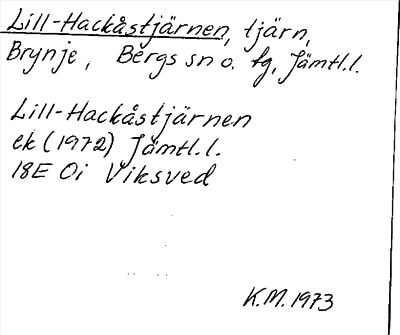 Lill-Hackåstjärnen, tjärn,
Brynje, Bergs sn o. tg, Jämtl.l.
Lill-Hackåstjärnen
ek (1972) Jämtl.l.
18E Oi Viksved
K.M. 1973